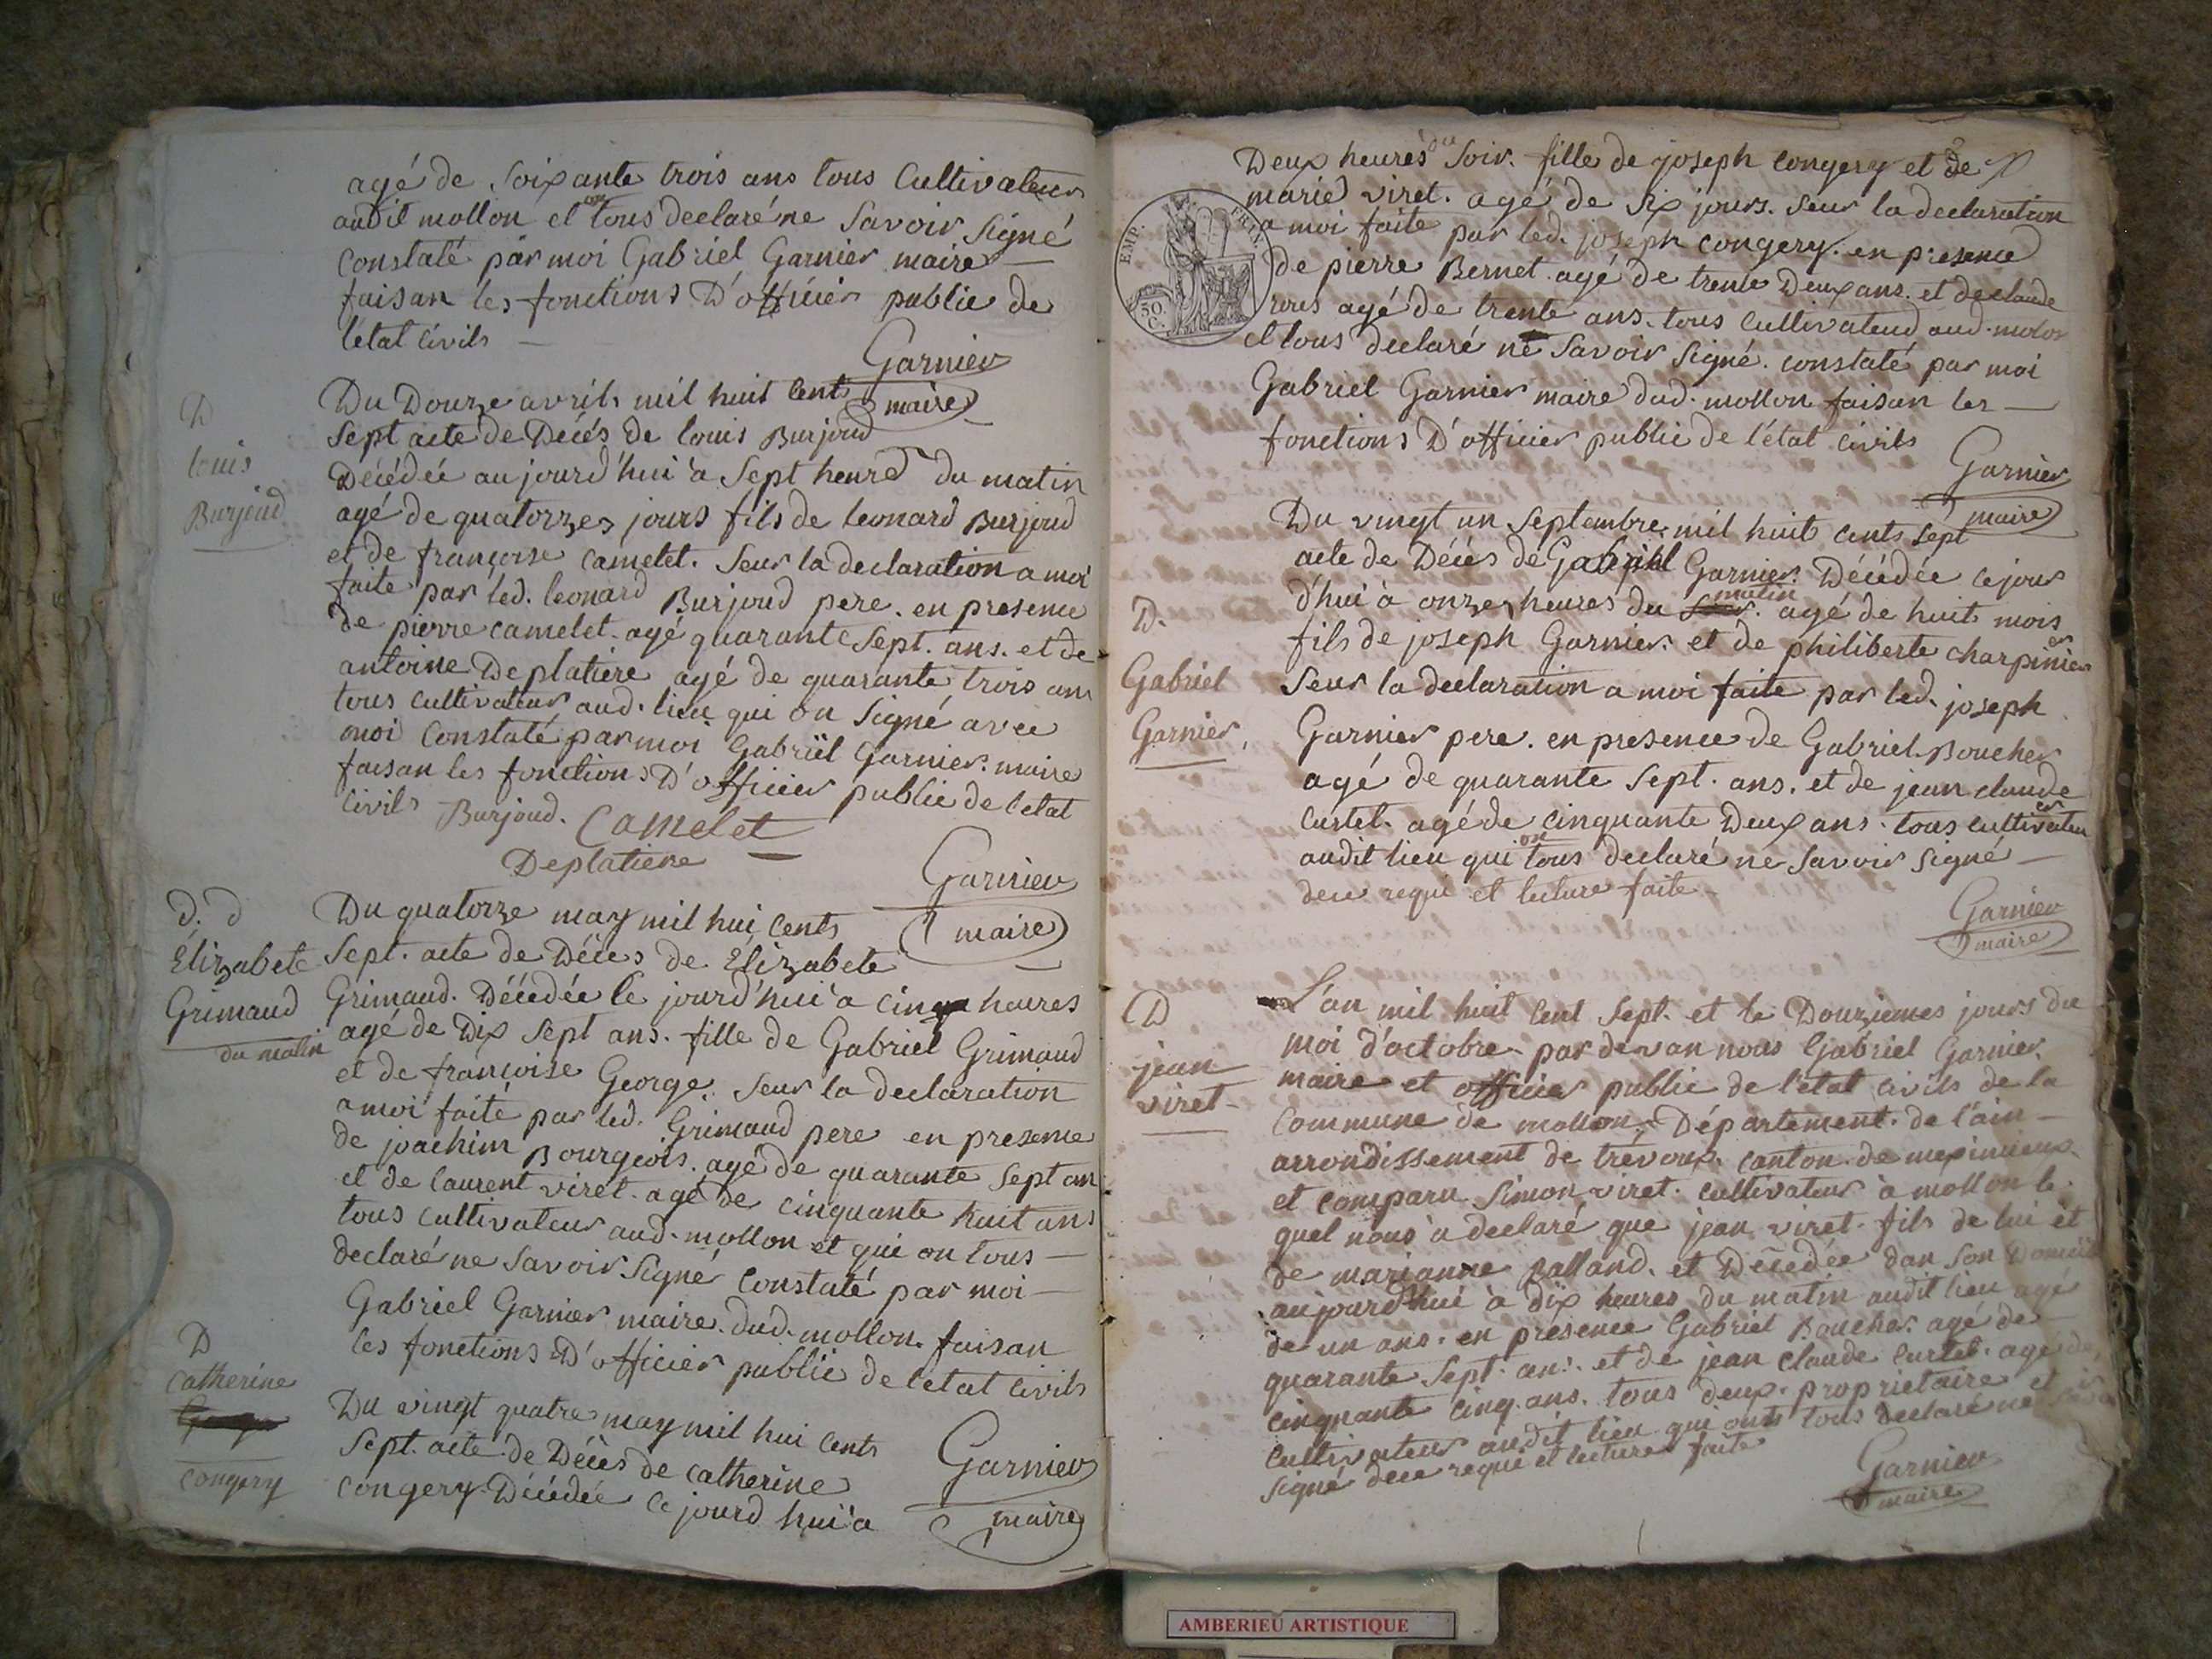 agé de soixante trois ans tous Cultivateur
audit mollon et on tous declaré ne Savoir Signé
Constaté par moi Gabriel Garnier maire
faisan les fonctions D'officier public de
l'etat Civils
Garnier
maire
D
louis
Burjoud
Du Douze avril mil huit Cents
Sept acte de Décés de louis Burjoud
Décédée aujourd'hui a Sept heures du matin
agé de quatorzes jours fils de leonard Burjoud
et de françoise Camelet. Seur la declaration a moi
faite par led. leonard Burjoud pere. en presence
de pierre camelet. agé quarante Sept. ans. et de
antoine Deplatière agé de quarante trois ans
tous cultivateur aud. lieu qui on Signé avec
moi Constaté par moi Gabriël Garnier. maire
faisan les fonctions D'officier public de l'etat
Civils Burjoud. Camelet
Deplatiere
Garnier
maire
d. d
Élizabete
Grimaud
du matin
Du quatorze may mil hui Cents
Sept. acte de Décès de Élizabete
Grimaud. Décédée le jourd'hui a cinq heures
agé de Dix Sept ans. fille de Gabriel Grimaud
et de françoise George. Seur la declaration
a moi faite par led. Grimaud pere en presence
de joachim Bourgeois. agé de quarante Sept an
et de laurent viret. agé de cinquante huit ans
tous cultivateur aud. mollon et qui on tous
declaré ne Savoir Signé Constaté par moi
Gabriel Garnier maire. dud. mollon. faisan
les fonctions D'officier public de l'etat Civils
Garnier
maire
D
Catherine
Congery
Du vingt quatre may mil hui Cents
Sept. acte de Décès de Catherine
Congery. Décédée ce jourd'hui a
Deux heures du Soir. fille de joseph Congery et de
marie viret. agé de Six jours. Seur la declaration
a moi faite par led. joseph Congery. en presence
de pierre Bernet. agé de trente Deux ans. et de claude
rous agé de trente ans. tous Cultivateur aud. molon
et tous declaré ne Savoir Signé. constaté par moi
Gabriel Garnier maire dud. mollon faisan les
fonctions D'officier public de l'état civils
Garnier
maire
EMP. FRAN.
50 C.
D.
Gabriel
Garnier
Du vingt un Septembre mil huit cents Sept
acte de Décès de Gabriel Garnier. Décédée ce jour
d'hui à onzes heures du matin agé de huit mois
fils de joseph Garnier. et de philiberte charpinier
Seur la declaration a moi faite par led. joseph
Garnier pere. en presence de Gabriel. Boucher
agé de quarante Sept. ans. et de jean claude
Curtet. agé de cinquante Deux ans. tous cultivateur
audit lieu qui on tous declaré ne Savoir Signé
deu requi et lecture faite
Garnier
maire
D
jean
viret
L'an mil huit Cent Sept. et le Douziemes jours du
moi d'octobre. par devan nous Gabriel Garnier.
maire et officier public de l'état civils de la
Commune de mollon. Département. de l'ain
arrondissement de trévoux. canton. de meximieux.
et comparu. Simon viret. cultivateur à mollon le.
quel nous a declaré que jean viret. fils de lui et
de marianne Ralland. et Décédée dan Son Domicile
aujourd'hui à dix heures du matin audit lieu agé
de un ans. en présence Gabriel Boucher. agé de
quarante Sept. ans. et de jean claude Curtet. agé de
cinquante cinq. ans. tous deux. proprietaire et
Cultivateur audit lieu qui onts tous declaré ne
Signé deu requi et lecture faite
Garnier
maire
AMBERIEU ARTISTIQUE